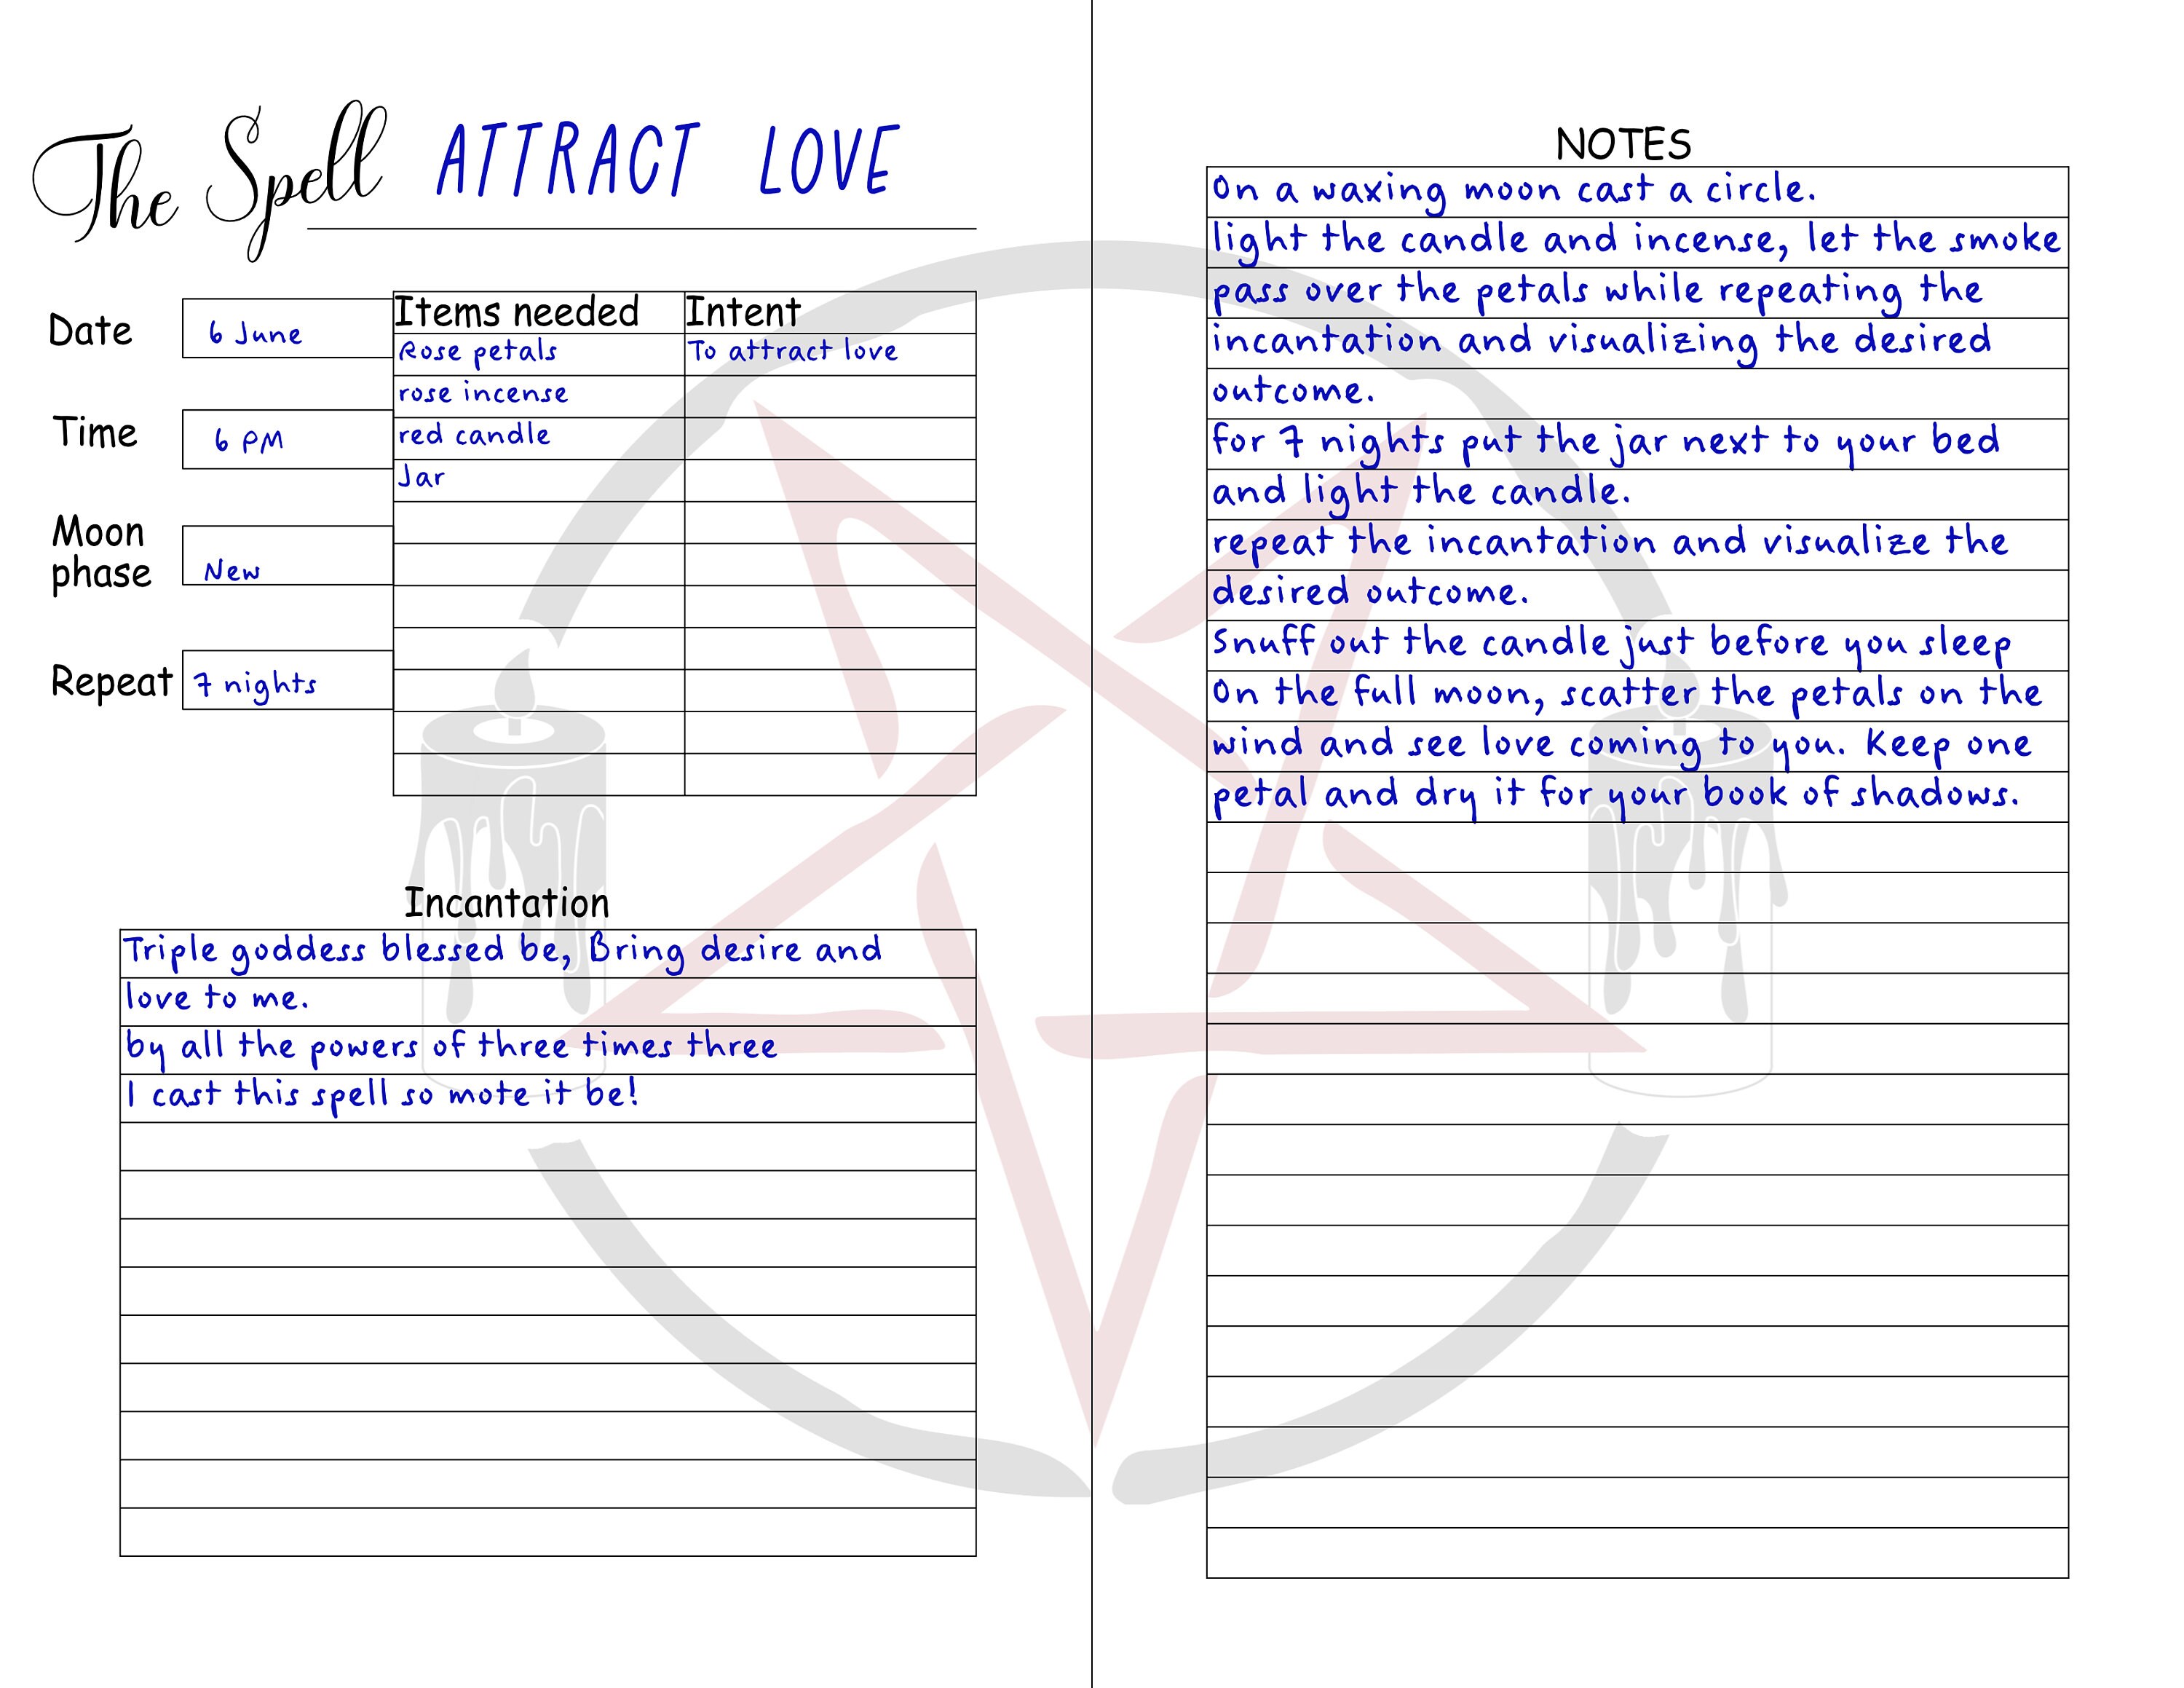 The Spell ATTRACT LOVE
Date 6 June
Time 6 PM
Moon
phase New
Repeat 7 nights
Items needed Intent
Rose petals To attract love
rose incense
red candle
Jar
Incantation
Triple goddess blessed be, Bring desire and
love to me.
by all the powers of three times three
I cast this spell so mote it be!
NOTES
On a waxing moon cast a circle.
light the candle and incense, let the smoke
pass over the petals while repeating the
incantation and visualizing the desired
outcome.
for 7 nights put the jar next to your bed
and light the candle.
repeat the incantation and visualize the
desired outcome.
Snuff out the candle just before you sleep
On the full moon, scatter the petals on the
wind and see love coming to you. Keep one
petal and dry it for your book of shadows.